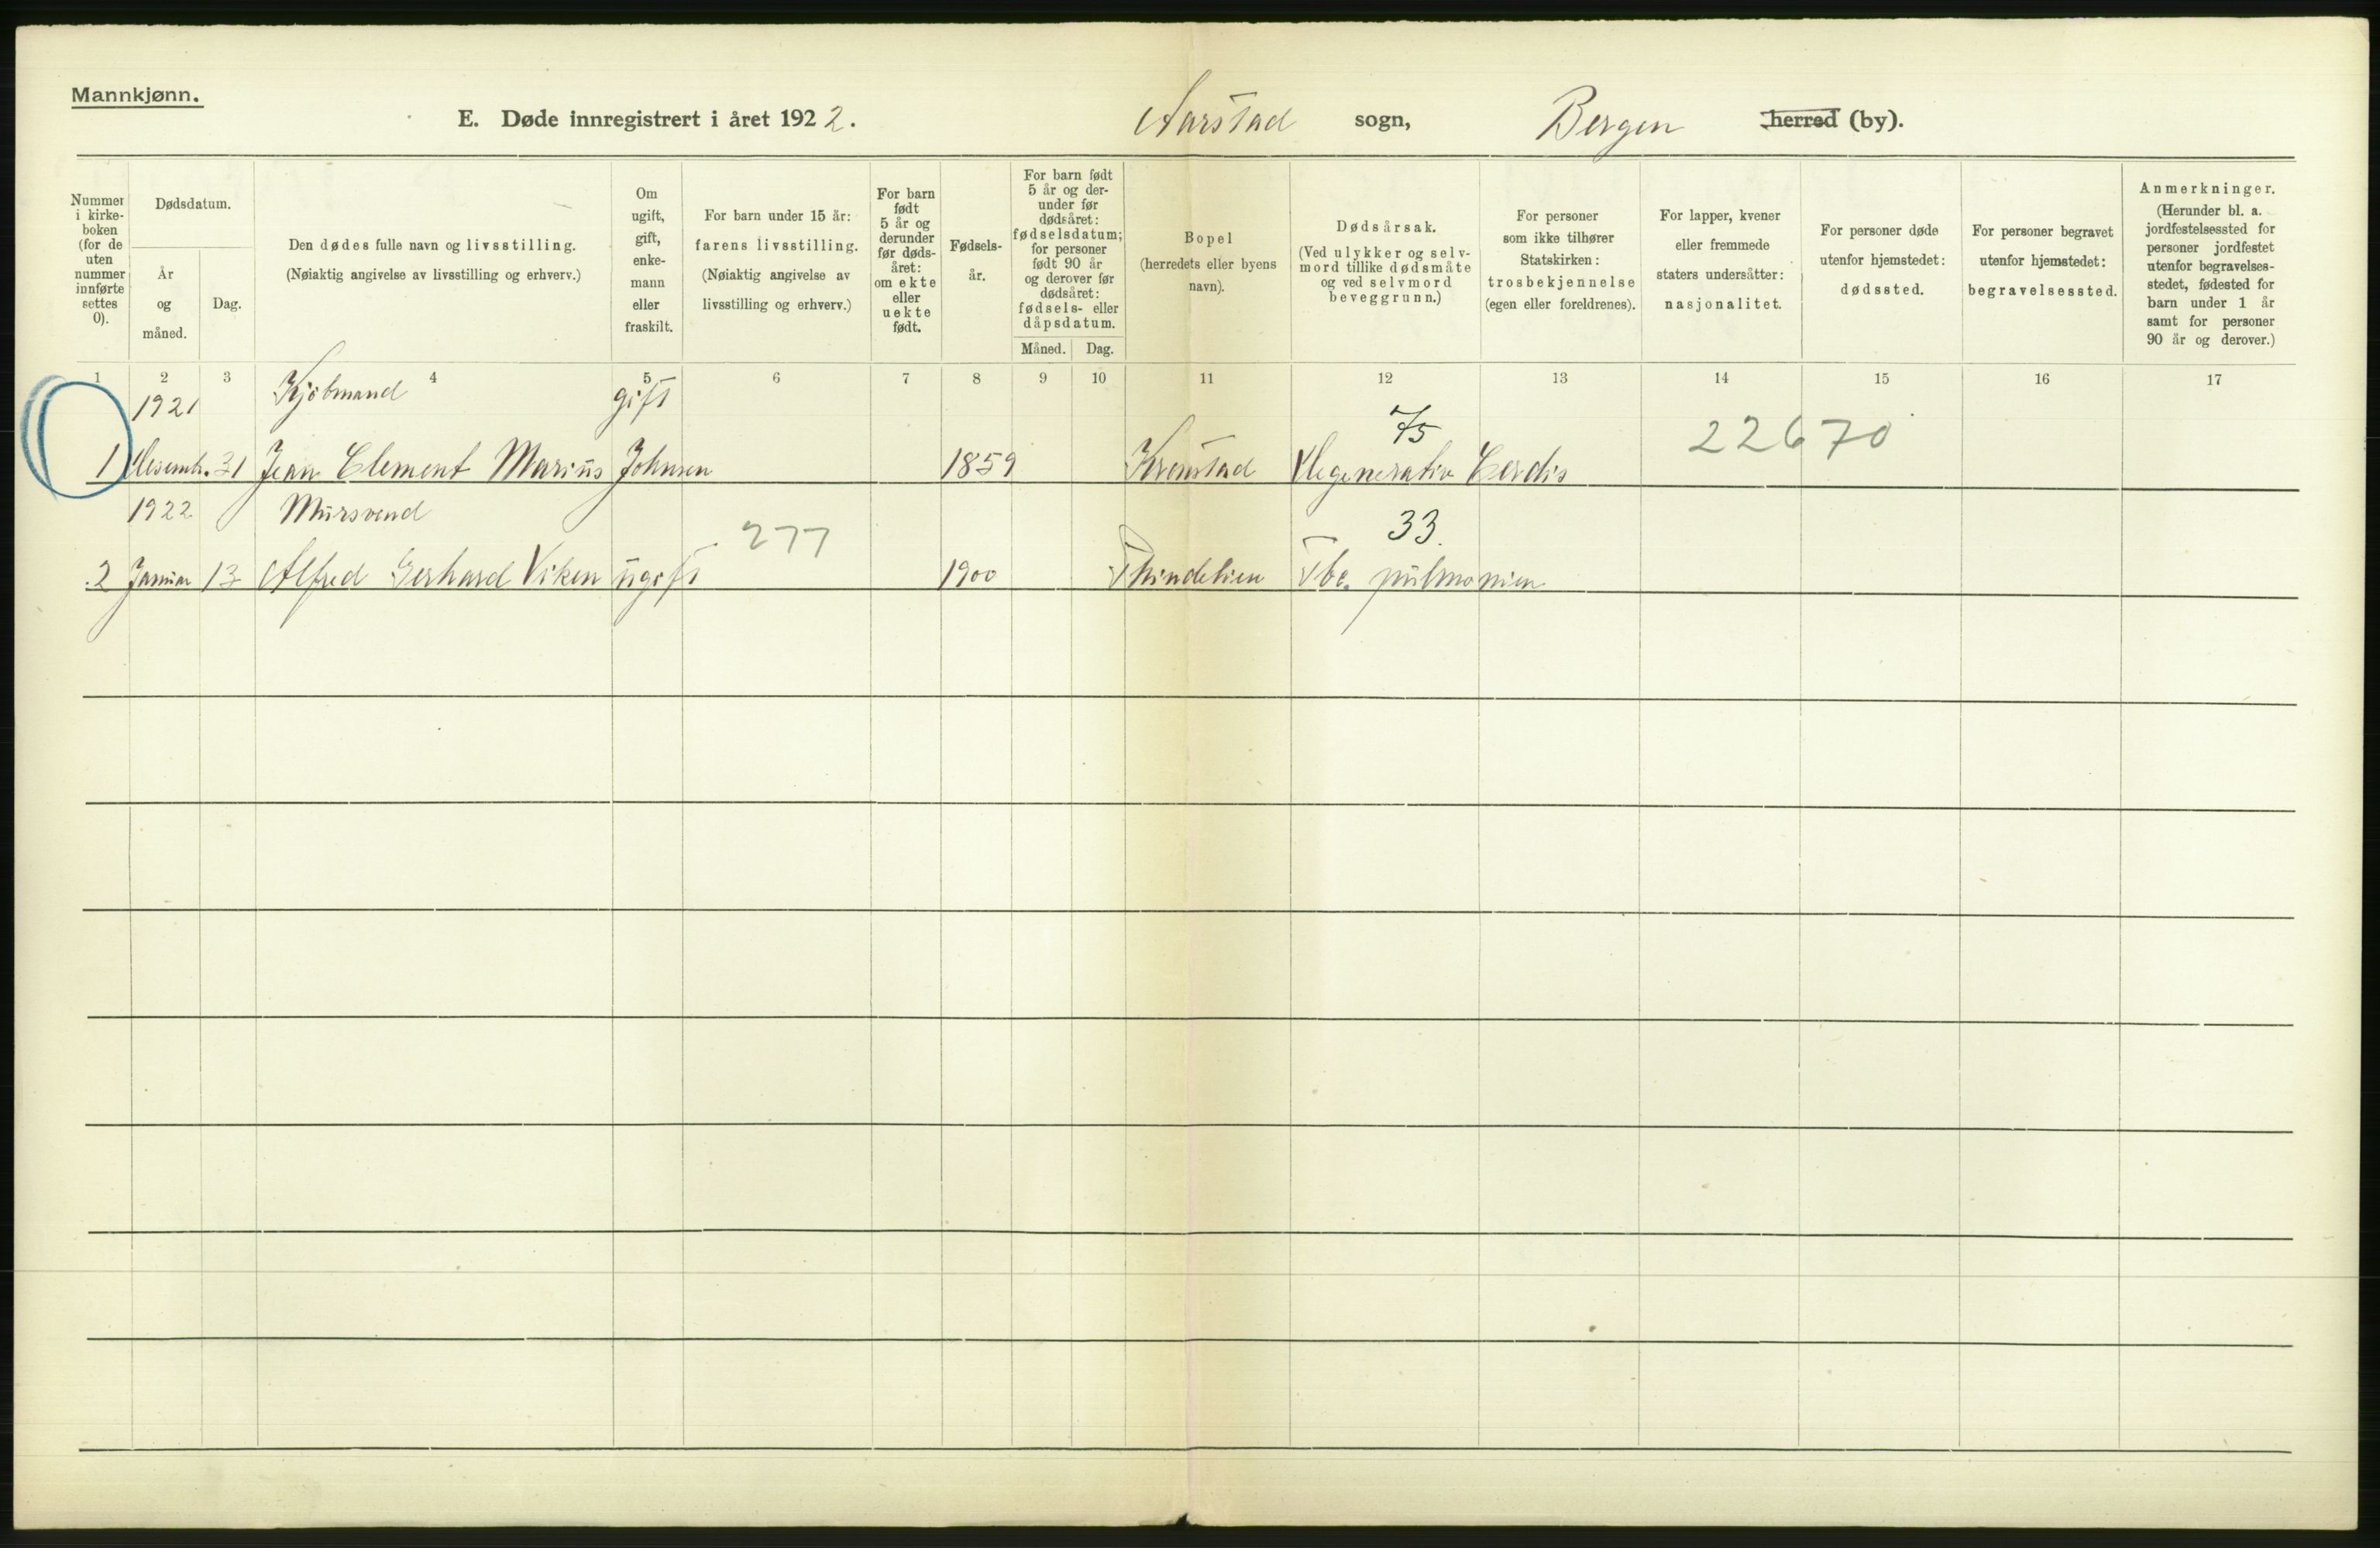 Mannkjønn.
E. Døde innregistrert i året 1922. Aarstad sogn, Bergen herred (by).
Nummer i kirkeboken (for de uten nummer innførte settes 0).
Dødsdatum.
År og måned.
Dag.
Den dødes fulle navn og livsstilling.
(Nøiaktig angivelse av livsstilling og erhverv.)
Om ugift, gift, enkemann eller fraskilt.
For barn under 15 år: farens livsstilling.
(Nøiaktig angivelse av livsstilling og erhverv.)
For barn født 5 år og derunder før dødsåret: om ekte eller uekte født.
Fødselsår.
For barn født 5 år og derunder før dødsåret: fødselsdatum; for personer født 90 år og derover før dødsåret: fødsels- eller dåpsdatum.
Måned. Dag.
Bopel (herredets eller byens navn).
Dødsårsak.
(Ved ulykker og selvmord tillike dødsmåte og ved selvmord beveggrunn.)
For personer som ikke tilhører Statskirken: trosbekjennelse (egen eller foreldrenes).
For lapper, kvener eller fremmede staters undersåtter: nasjonalitet.
For personer døde utenfor hjemstedet: dødssted.
For personer begravet utenfor hjemstedet: begravelsessted.
Anmerkninger.
(Herunder bl. a. jordfestelsessted for personer jordfestet utenfor begravelsesstedet, fødested for barn under 1 år samt for personer 90 år og derover.)
1 2 3 4 5 6 7 8 9 10 11 12 13 14 15 16 17
1921 Kjøbmand gift 75 22670
1 Desemb. 31 Jean Clement Marius Johnsen 1859 Kronstad Degenerativ Cordis
1922 Mursvend 277 33.
2 Januar 13 Alfred Gerhard Viken ugift 1900 Tbc. pulmonum